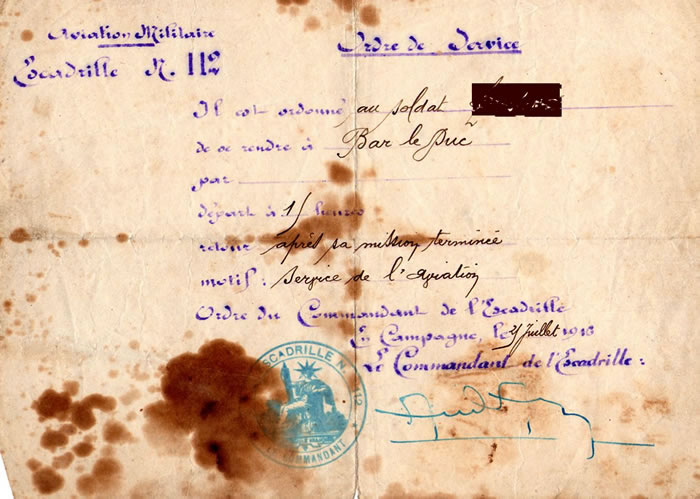 Aviation Militaire
Escadrille N. 112
Ordre de Service
Il est ordonné au soldat
de se rendre à Bar le Duc
par
départ à heures
retour après sa mission terminée
motif : Service de l'aviation
Ordre du Commandant de l'Escadrille
En Campagne, le Juillet 1916
Le Commandant de l'Escadrille :
ESCADRILLE N. 112
COMMANDANT